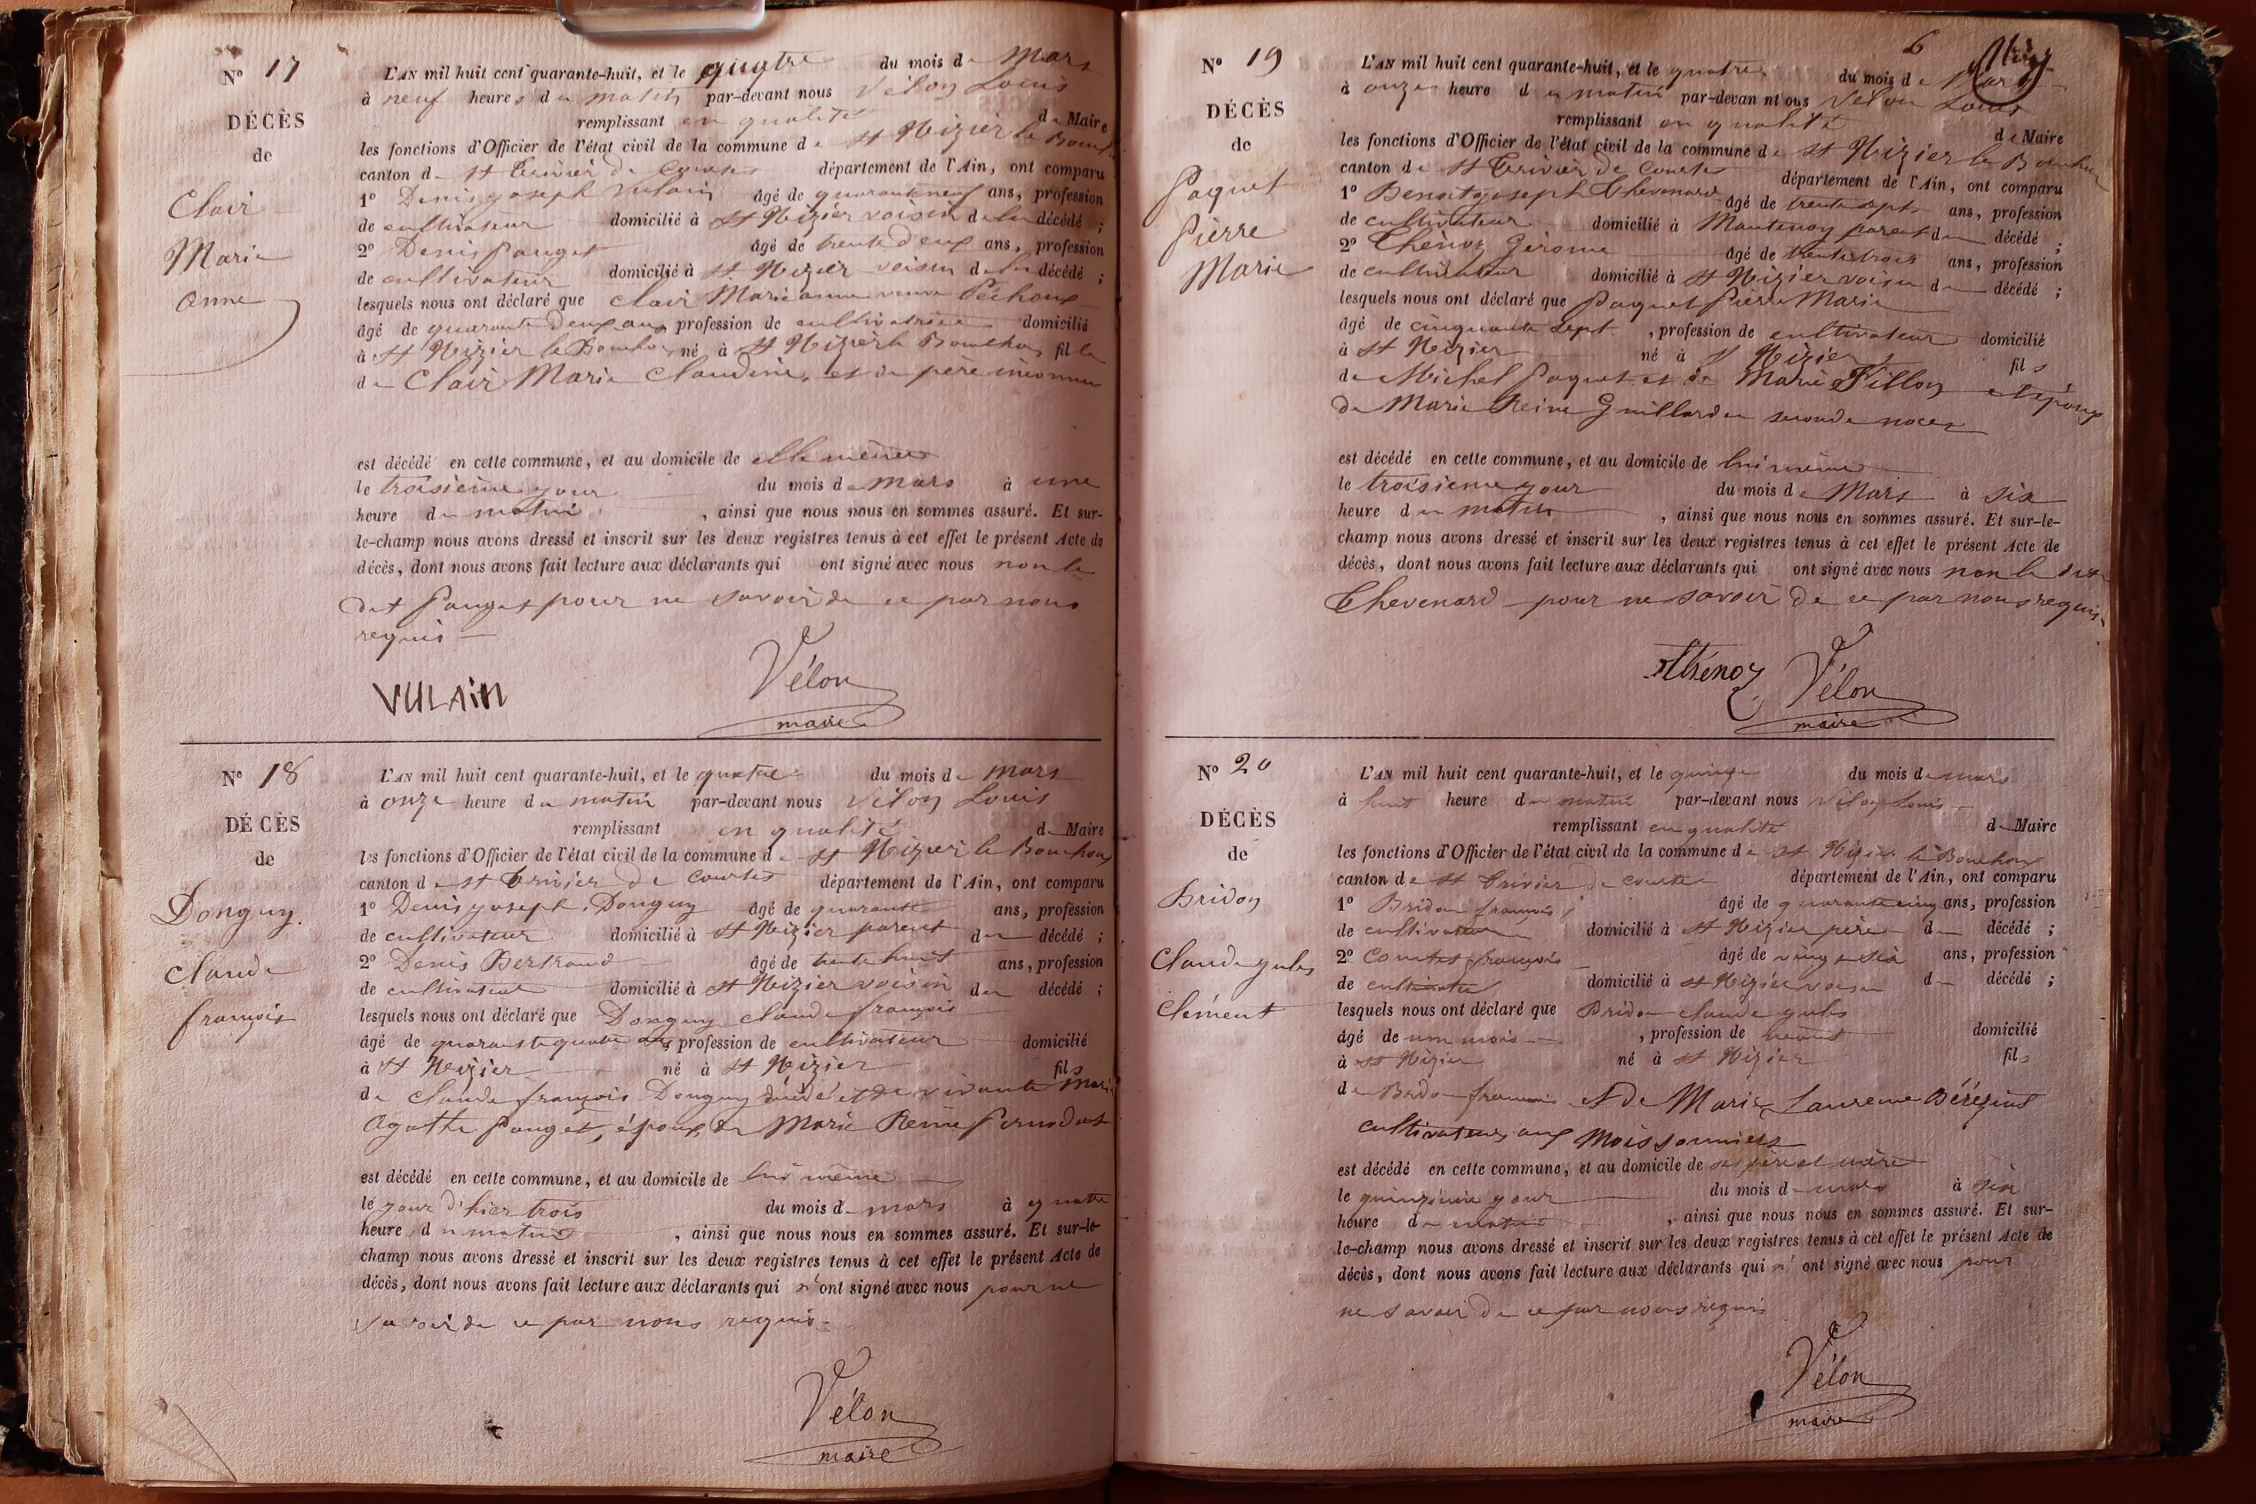 N° 17
DÉCÈS
de
Clair
Marie
anne
L'AN mil huit cent quarante-huit, et le quatre du mois de Mars
à neuf heures du matin par-devant nous Vélon Louis
remplissant en qualité de Maire
les fonctions d'Officier de l'état civil de la commune de St Nizier le Bouchoux
canton de St Trivier de Courtes département de l'Ain, ont comparu
1° Denis joseph Vulain âgé de quarante neuf ans, profession
de cultivateur domicilié à St Nizier voisin de la décédé ;
2° Denis Pauget âgé de trente deux ans, profession
de cultivateur domicilié à St Nizier voisin de la décédé ;
lesquels nous ont déclaré que Clair Marie anne veuve Péchoux
âgé de quarante deux ans, profession de cultivatrice domicilié
à St Nizier le Bouchoux né à St Nizier le Bouchoux fille
de Clair Marie Claudine, et de père inconnu
est décédé en cette commune, et au domicile de elle même
le troisième jour du mois de mars à une
heure du matin, ainsi que nous nous en sommes assuré. Et sur-
le-champ nous avons dressé et inscrit sur les deux registres tenus à cet effet le présent Acte de
décès, dont nous avons fait lecture aux déclarants qui ont signé avec nous non le
dit Pauget pour ne savoir de ce par nous
requis
VULAIN Vélon
maire
N° 18
DÉCÈS
de
Donguy.
Claude
françois
L'AN mil huit cent quarante-huit, et le quatre du mois de mars
à onze heure du matin par-devant nous Vélon Louis
remplissant en qualité de Maire
les fonctions d'Officier de l'état civil de la commune de St Nizier le Bouchoux
canton de St Trivier de Courtes département de l'Ain, ont comparu
1° Denis joseph Donguy âgé de quarante ans, profession
de cultivateur domicilié à St Nizier parent du décédé ;
2° Denis Bertrand âgé de trente huit ans, profession
de cultivateur domicilié à St Nizier voisin du décédé ;
lesquels nous ont déclaré que Donguy claude françois
âgé de quarante quatre ans, profession de cultivateur domicilié
à St Nizier né à St Nizier fils
de Claude françois Donguy décédé et de vivante Marie
Agathe Pauget, époux de Marie Reine
est décédé en cette commune, et au domicile de lui même
le jour d'hier trois du mois de mars à quatre
heure du matin, ainsi que nous nous en sommes assuré. Et sur-le-
champ nous avons dressé et inscrit sur les deux registres tenus à cet effet le présent Acte de
décès, dont nous avons fait lecture aux déclarants qui n'ont signé avec nous pour ne
savoir de ce par nous requis
Vélon
maire
6
N° 19
DÉCÈS
de
Paquet
Pierre
Marie
L'AN mil huit cent quarante-huit, et le quatre du mois de Mars
à onze heure du matin par-devant nous Vélon Louis
remplissant en qualité de Maire
les fonctions d'Officier de l'état civil de la commune de St Nizier le Bouchoux
canton de St Trivier de Courtes département de l'Ain, ont comparu
1° Benoit joseph Chevenard âgé de trente sept ans, profession
de cultivateur domicilié à Mantenay parent du décédé ;
2° Thénoz Gérome âgé de trente trois ans, profession
de cultivateur domicilié à St Nizier voisin du décédé ;
lesquels nous ont déclaré que Paquet Pierre Marie
âgé de cinquante sept, profession de cultivateur domicilié
à St Nizier né à St Nizier fils
de Michel Paquet et de Marie Fillon et époux
de Marie Reine Guillard en seconde noces
est décédé en cette commune, et au domicile de lui même
le troisieme jour du mois de Mars à six
heure du matin, ainsi que nous nous en sommes assuré. Et sur-le-
champ nous avons dressé et inscrit sur les deux registres tenus à cet effet le présent Acte de
décès, dont nous avons fait lecture aux déclarants qui ont signé avec nous non le dit
Chevenard pour ne savoir de ce par nous requis
Thénoz Vélon
maire
N° 20
DÉCÈS
de
Bridon
Claude jules
Clément
L'AN mil huit cent quarante-huit, et le quinze du mois de mars
à huit heure du matin par-devant nous Vélon Louis
remplissant en qualité de Maire
les fonctions d'Officier de l'état civil de la commune de St Nizier le Bouchoux
canton de St Trivier de Courtes département de l'Ain, ont comparu
1° Bridon françois âgé de quarante cinq ans, profession
de cultivateur domicilié à St Nizier père du décédé ;
2° Comtet françois âgé de vingt six ans, profession
de cultivateur domicilié à St Nizier voisin du décédé ;
lesquels nous ont déclaré que Bridon claude jules
âgé de un mois, profession de néant domicilié
à St Nizier né à St Nizier fils
de Bridon françois et de Marie Laurence
cultivateurs aux Moissonniers
est décédé en cette commune, et au domicile de ses père et mère
le quinzième jour du mois de mars à six
heure du matin, ainsi que nous nous en sommes assuré. Et sur-
le-champ nous avons dressé et inscrit sur les deux registres tenus à cet effet le présent Acte de
décès, dont nous avons fait lecture aux déclarants qui n'ont signé avec nous pour
ne savoir de ce par nous requis
Vélon
maire